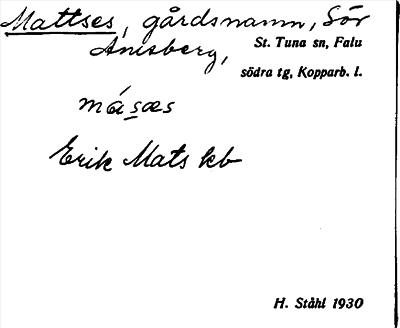 Mattses, gårdsnamn, Sör
Amsberg, St. Tuna sn, Falu
södra tg, Kopparb. l.
másæs
Erik Mats kb
H. Ståhl 1930